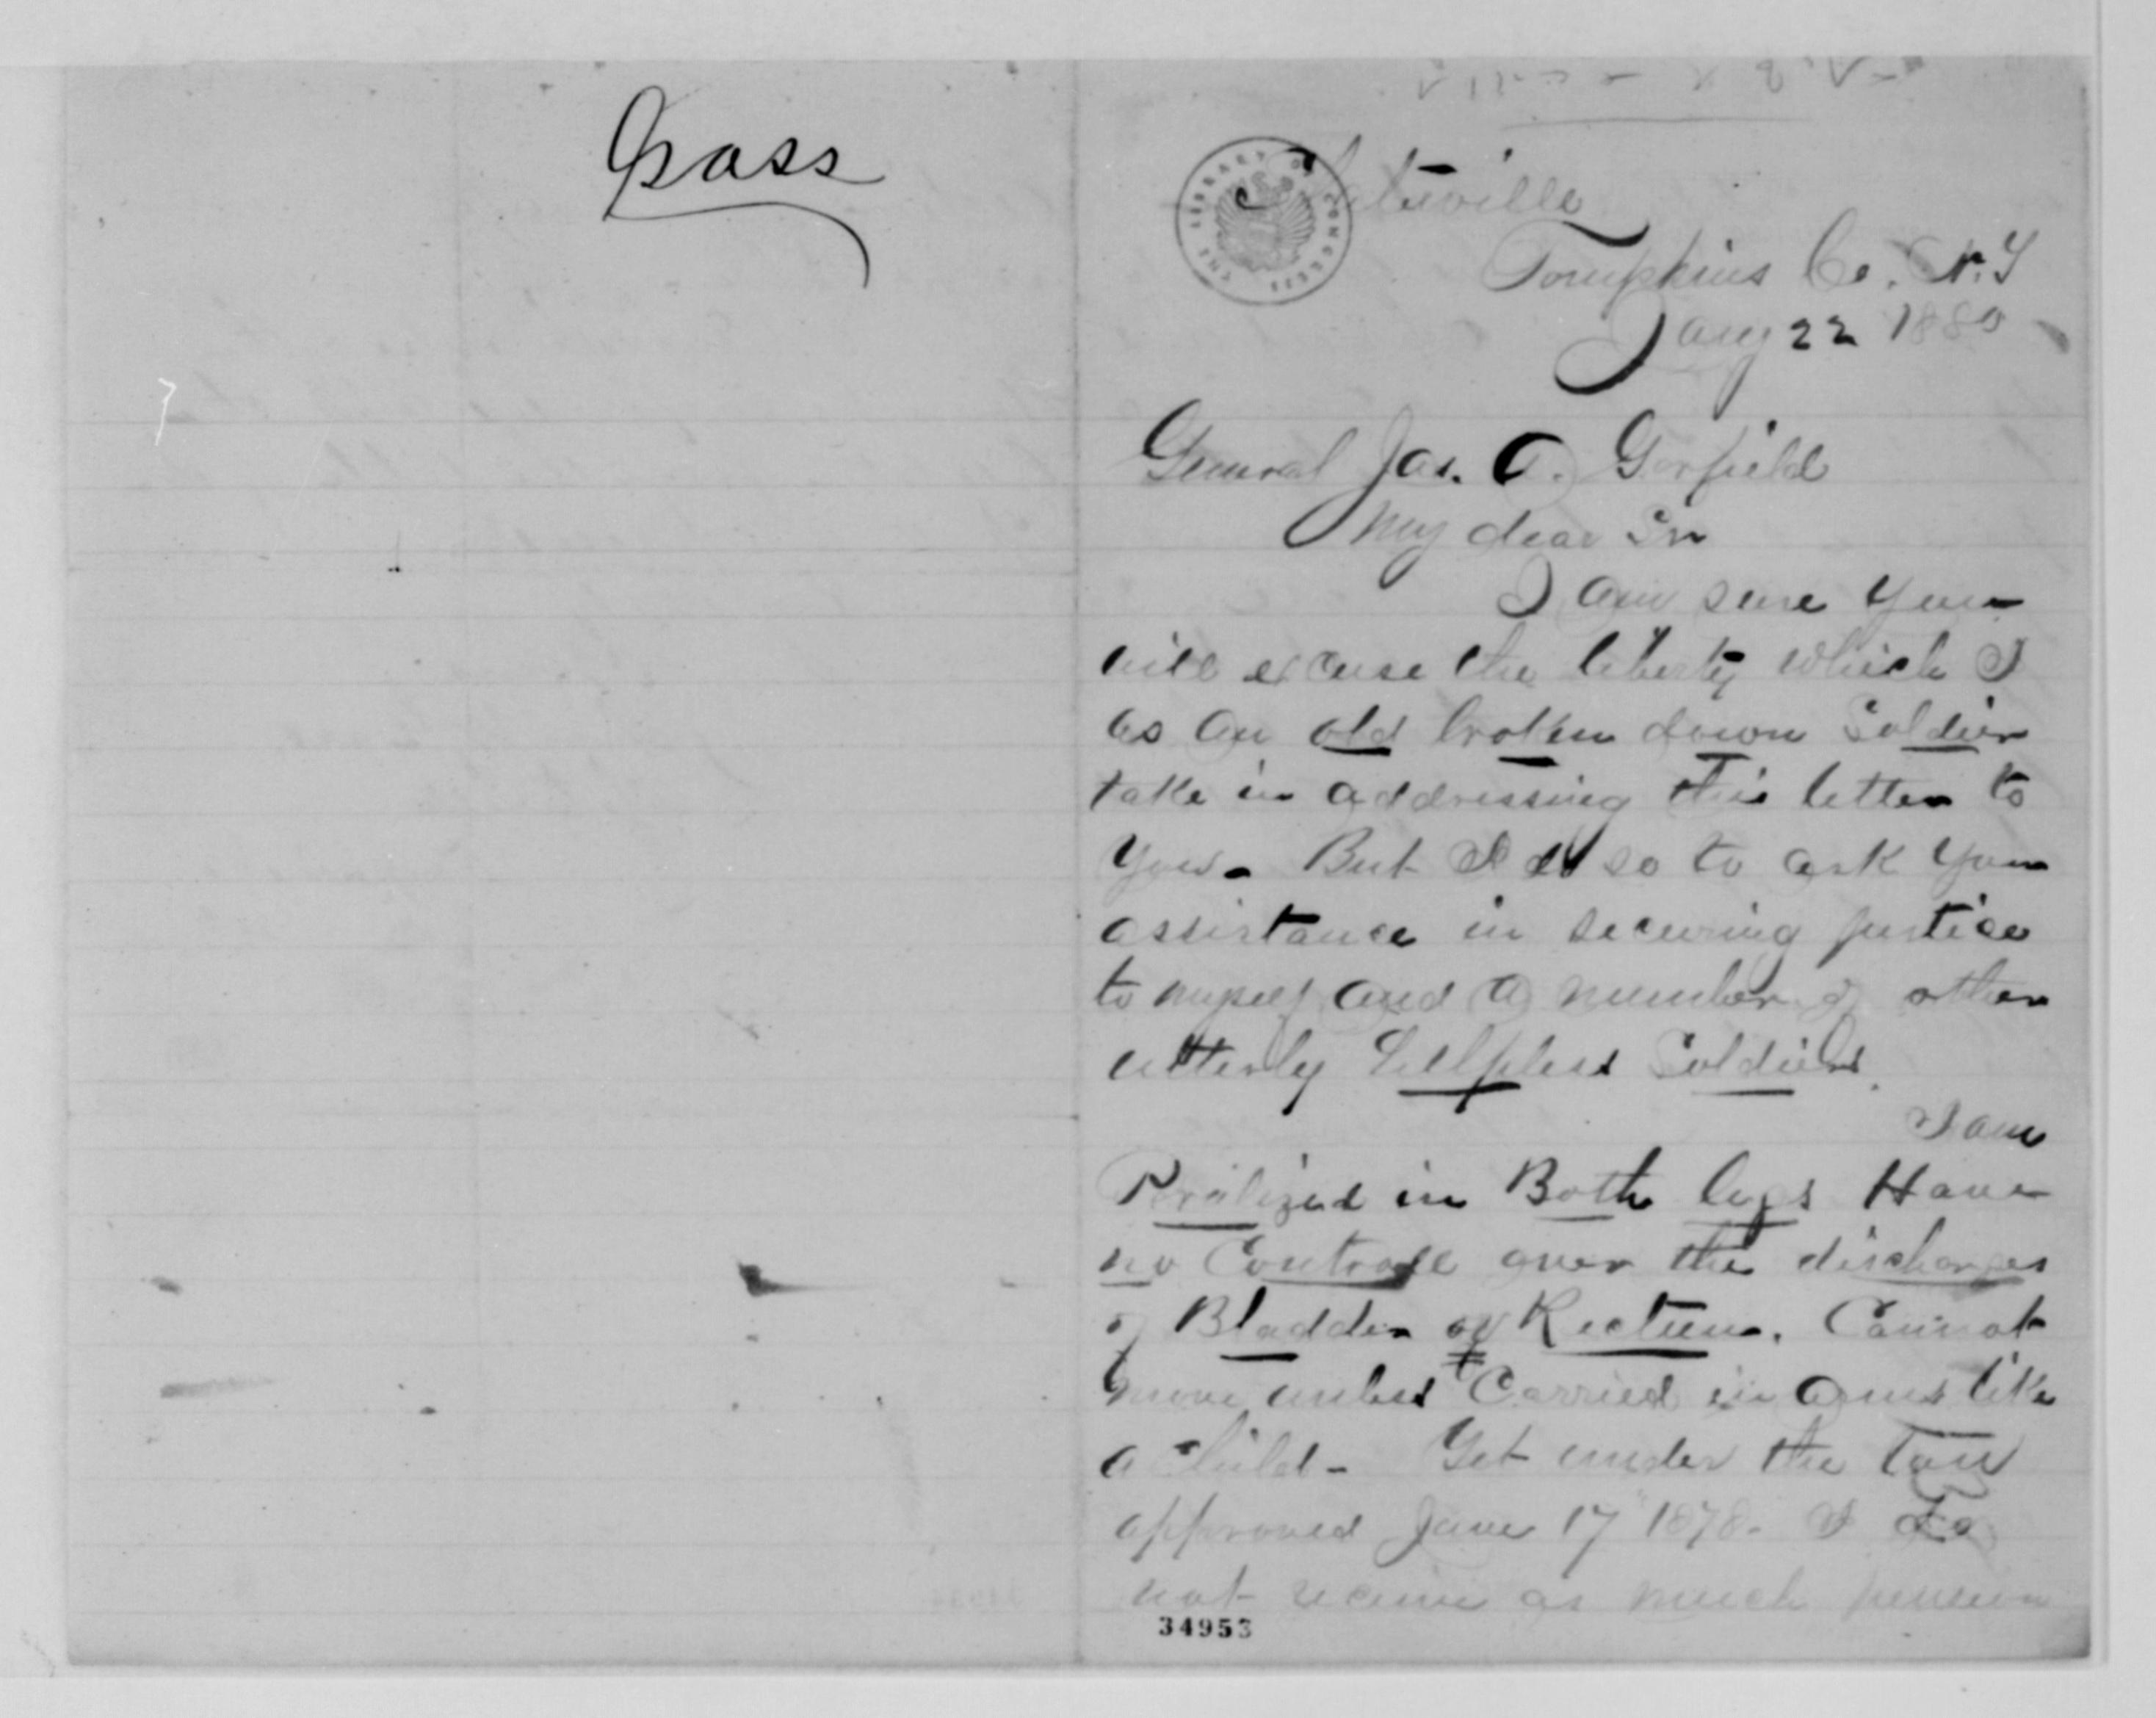 Grass
Slaterville
Tompkins Co. N.Y
Jany 22 1880
General Jas. A. Garfield
My dear Sir
I am sure you
will excuse the liberty which I
as an old broken down Soldier
take in addressing this letter to
you. But I do so to ask your
assistance in securing justice
to myself and a number of other
utterly helpless Soldiers.
I am
Paralized in Both legs Have
no Controll over the discharges
of Bladder or Rectum. Cannot
move unless Carried in arms like
a Child - Yet under the law
approved June 17 1878. I do
not receive as much pension
34953
THE LIBRARY OF CONGRESS